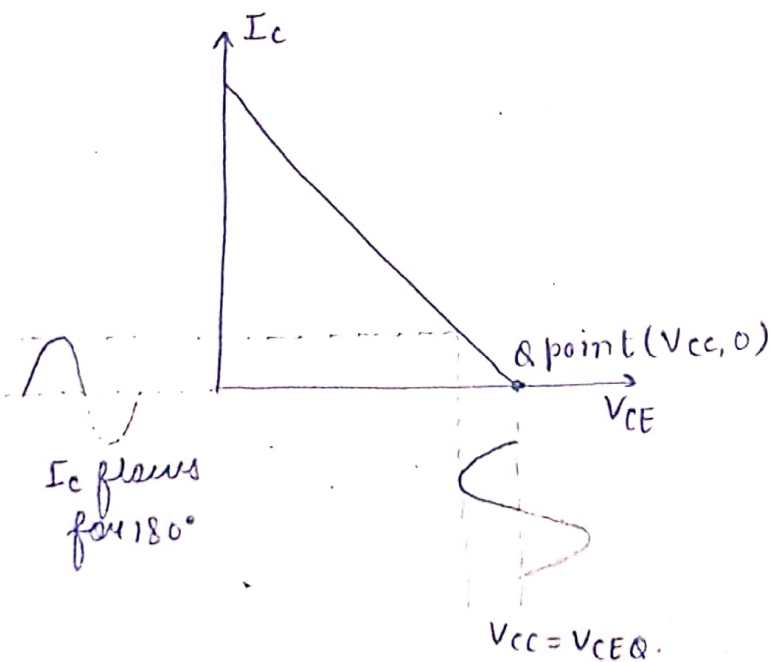 Ic
Q point (Vcc, 0)
VCE
Ic flows
for 180°
VCC = VCEQ.